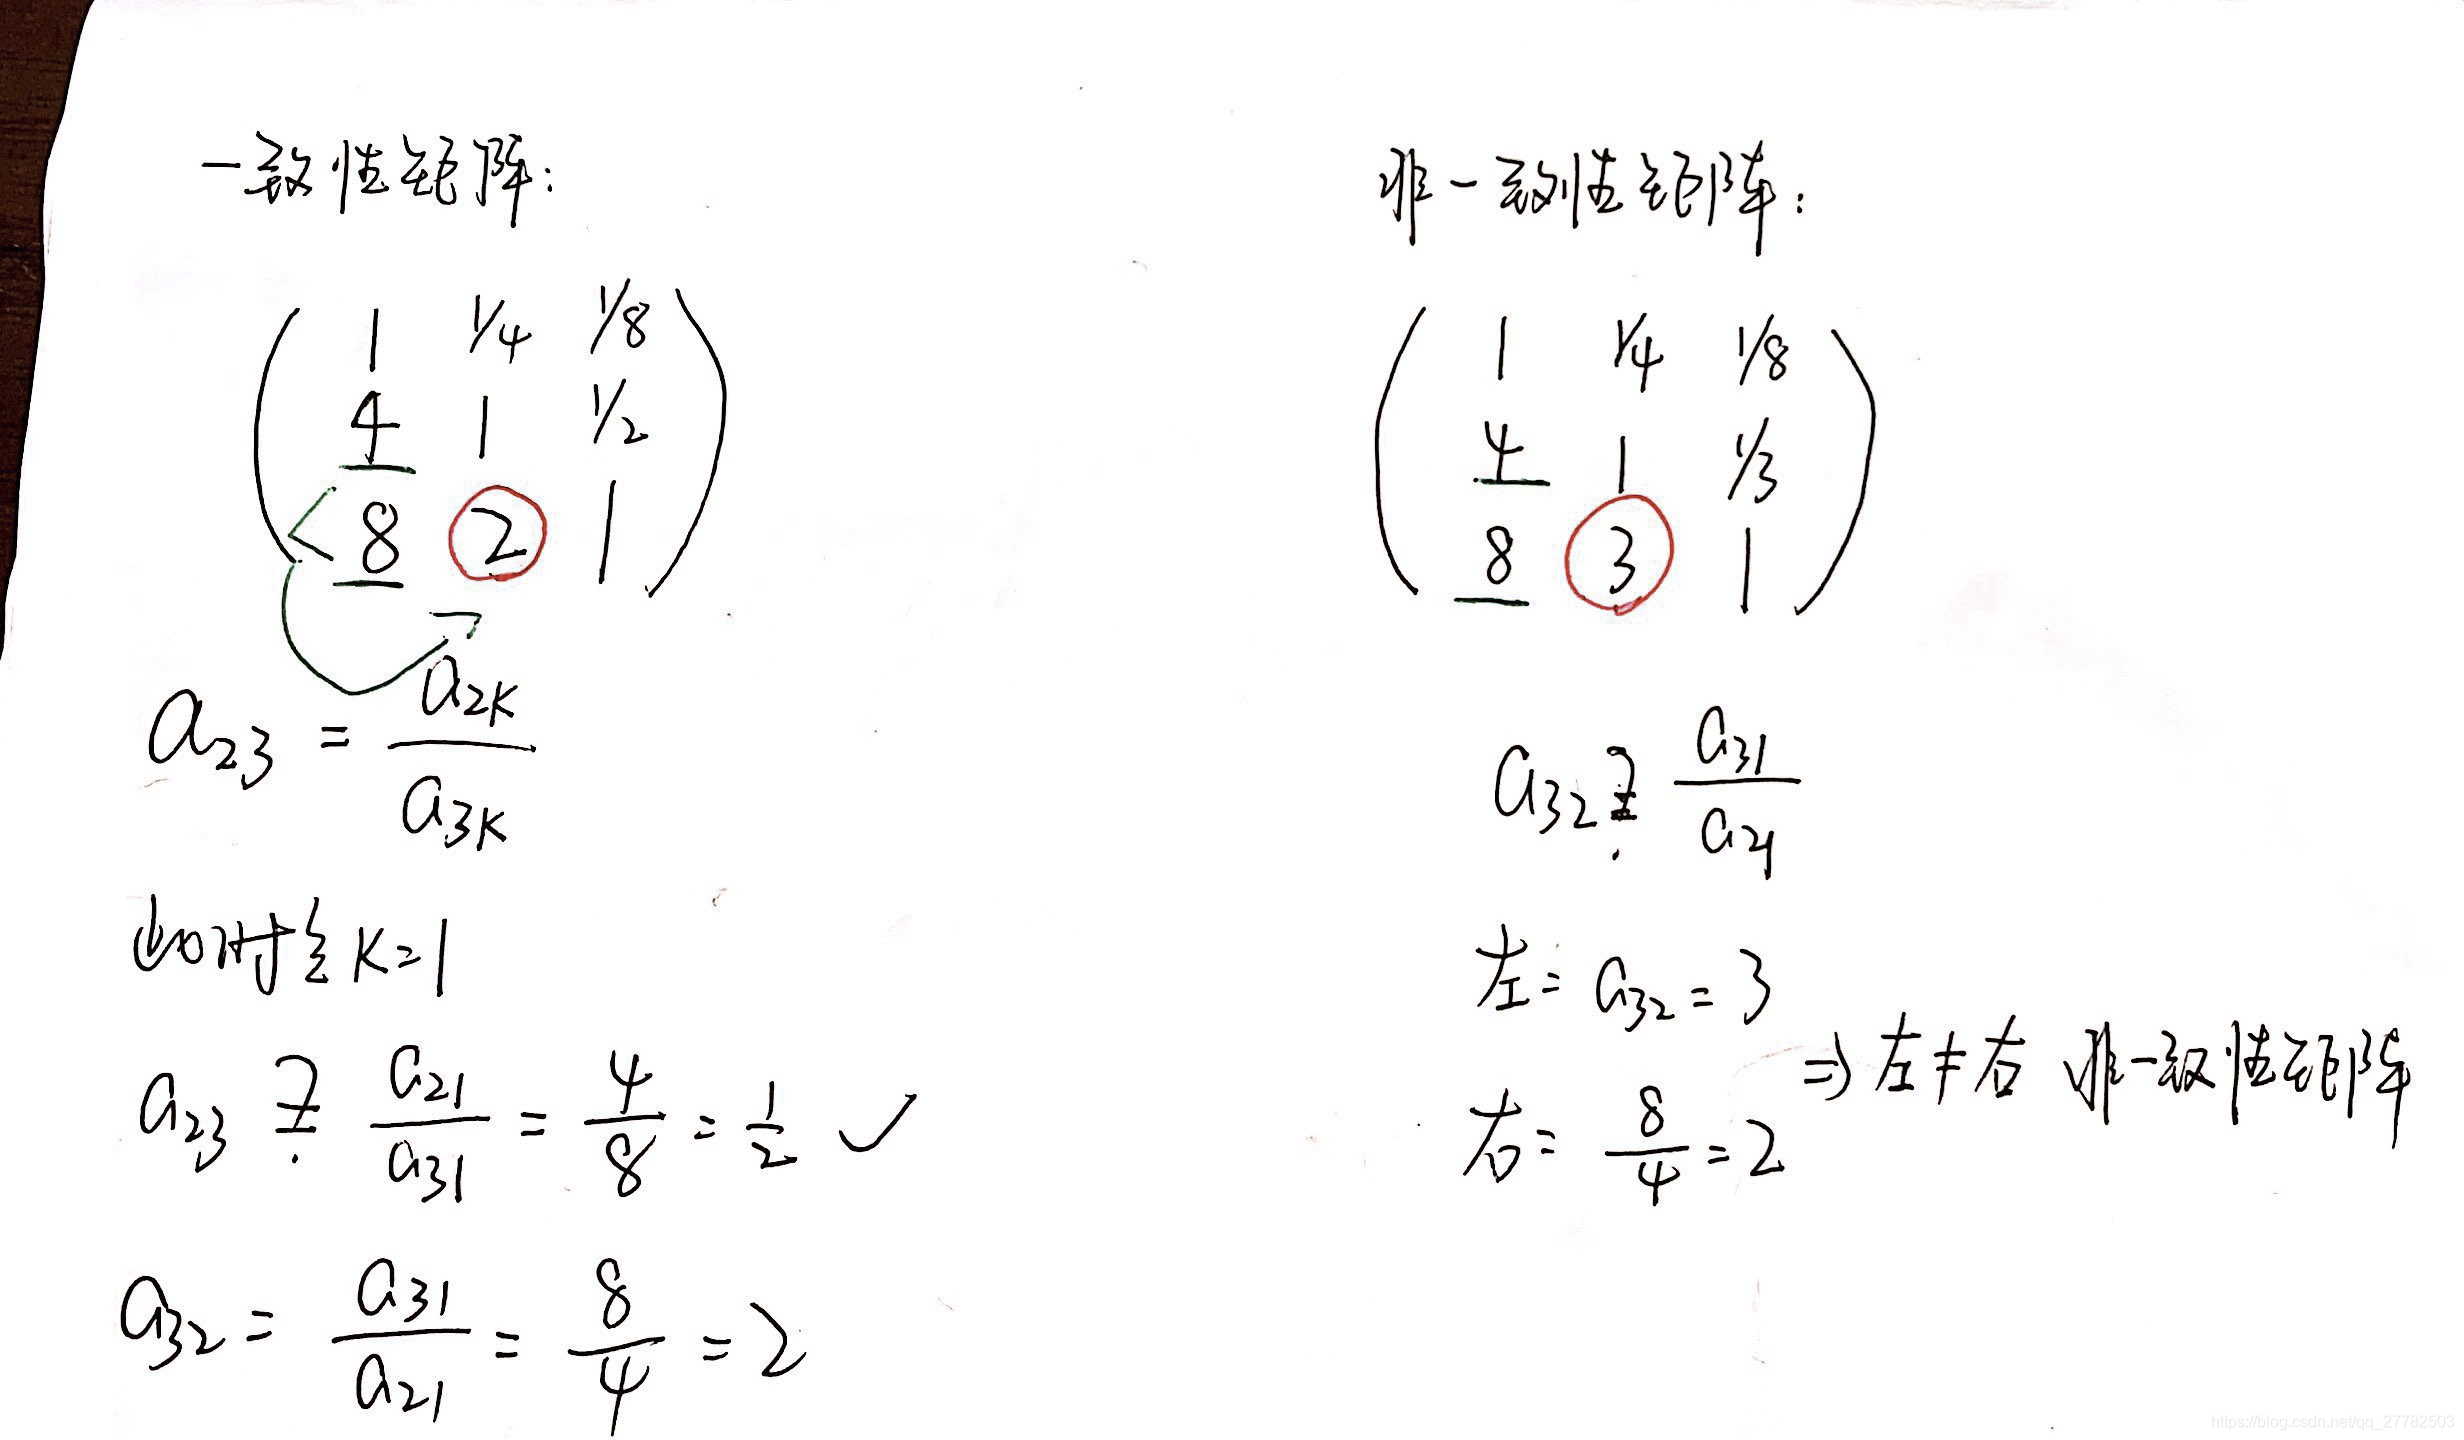 一致性矩阵:
1 1/4 1/8
4 1 1/2
8 2 1
a23 = a2K / a3K
此时令 K=1
a23 ?= a21 / a31 = 4/8 = 1/2 ✓
a32 = a31 / a21 = 8/4 = 2
非一致性矩阵:
1 1/4 1/8
4 1 1/3
8 3 1
a32 ?= a31 / a21
左= a32 = 3
右= 8/4 = 2
⇒ 左≠右 非一致性矩阵
https://blog.csdn.net/qq_27782503